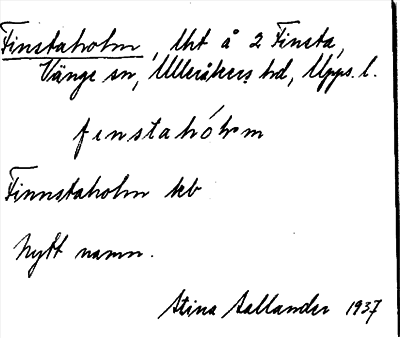 Finstaholm, lht å 2 Finsta,
Vänge sn, Ulleråkers hd, Upps. l.
finstahólm
Finnstaholm kb
Nytt namn.
Stina Sallander 1937